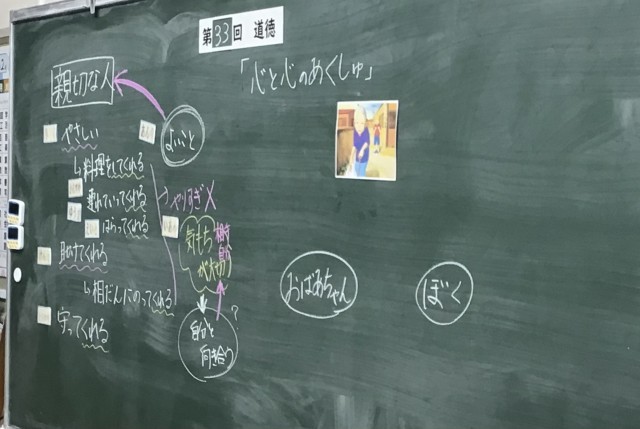 第33回 道徳
「心と心のあくしゅ」
親切な人
やさしい
↳料理をしてくれる
連れていってくれる
はらってくれる
助けてくれる
↳相だんにのってくれる
守ってくれる
やりすぎ×
気もち
が大切
自分と
向き合う
?
おばあちゃん
ぼく